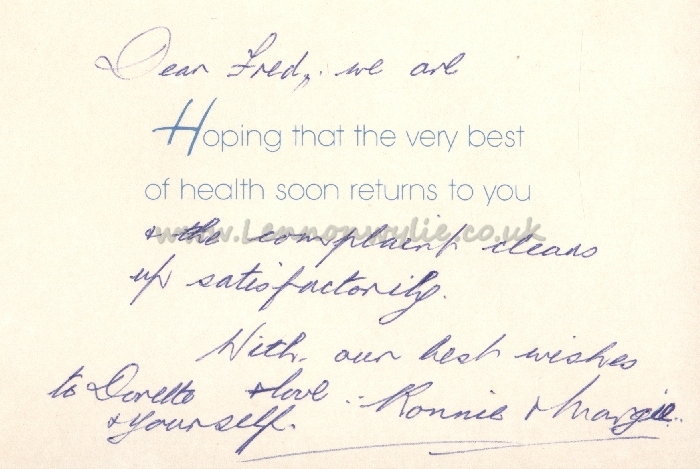 Dear Fred, we are
Hoping that the very best
of health soon returns to you
www.Lennonwylie.co.uk
& the complaint clears
up satisfactorily.
With our best wishes
to Dorette & love. Ronnie & Margie.
& yourself.